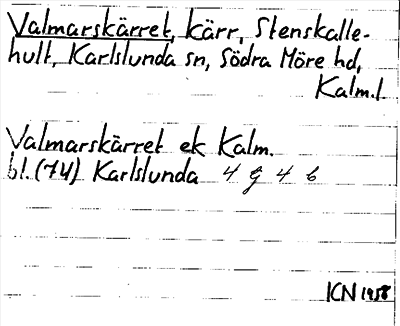 Valmarskärret, kärr, Stenskalle-
hult, Karlslunda sn, Södra Möre hd,
Kalm.l
Valmarskärret ek Kalm.
bl. (74) Karlslunda 4 g 4 b
ICN 1958